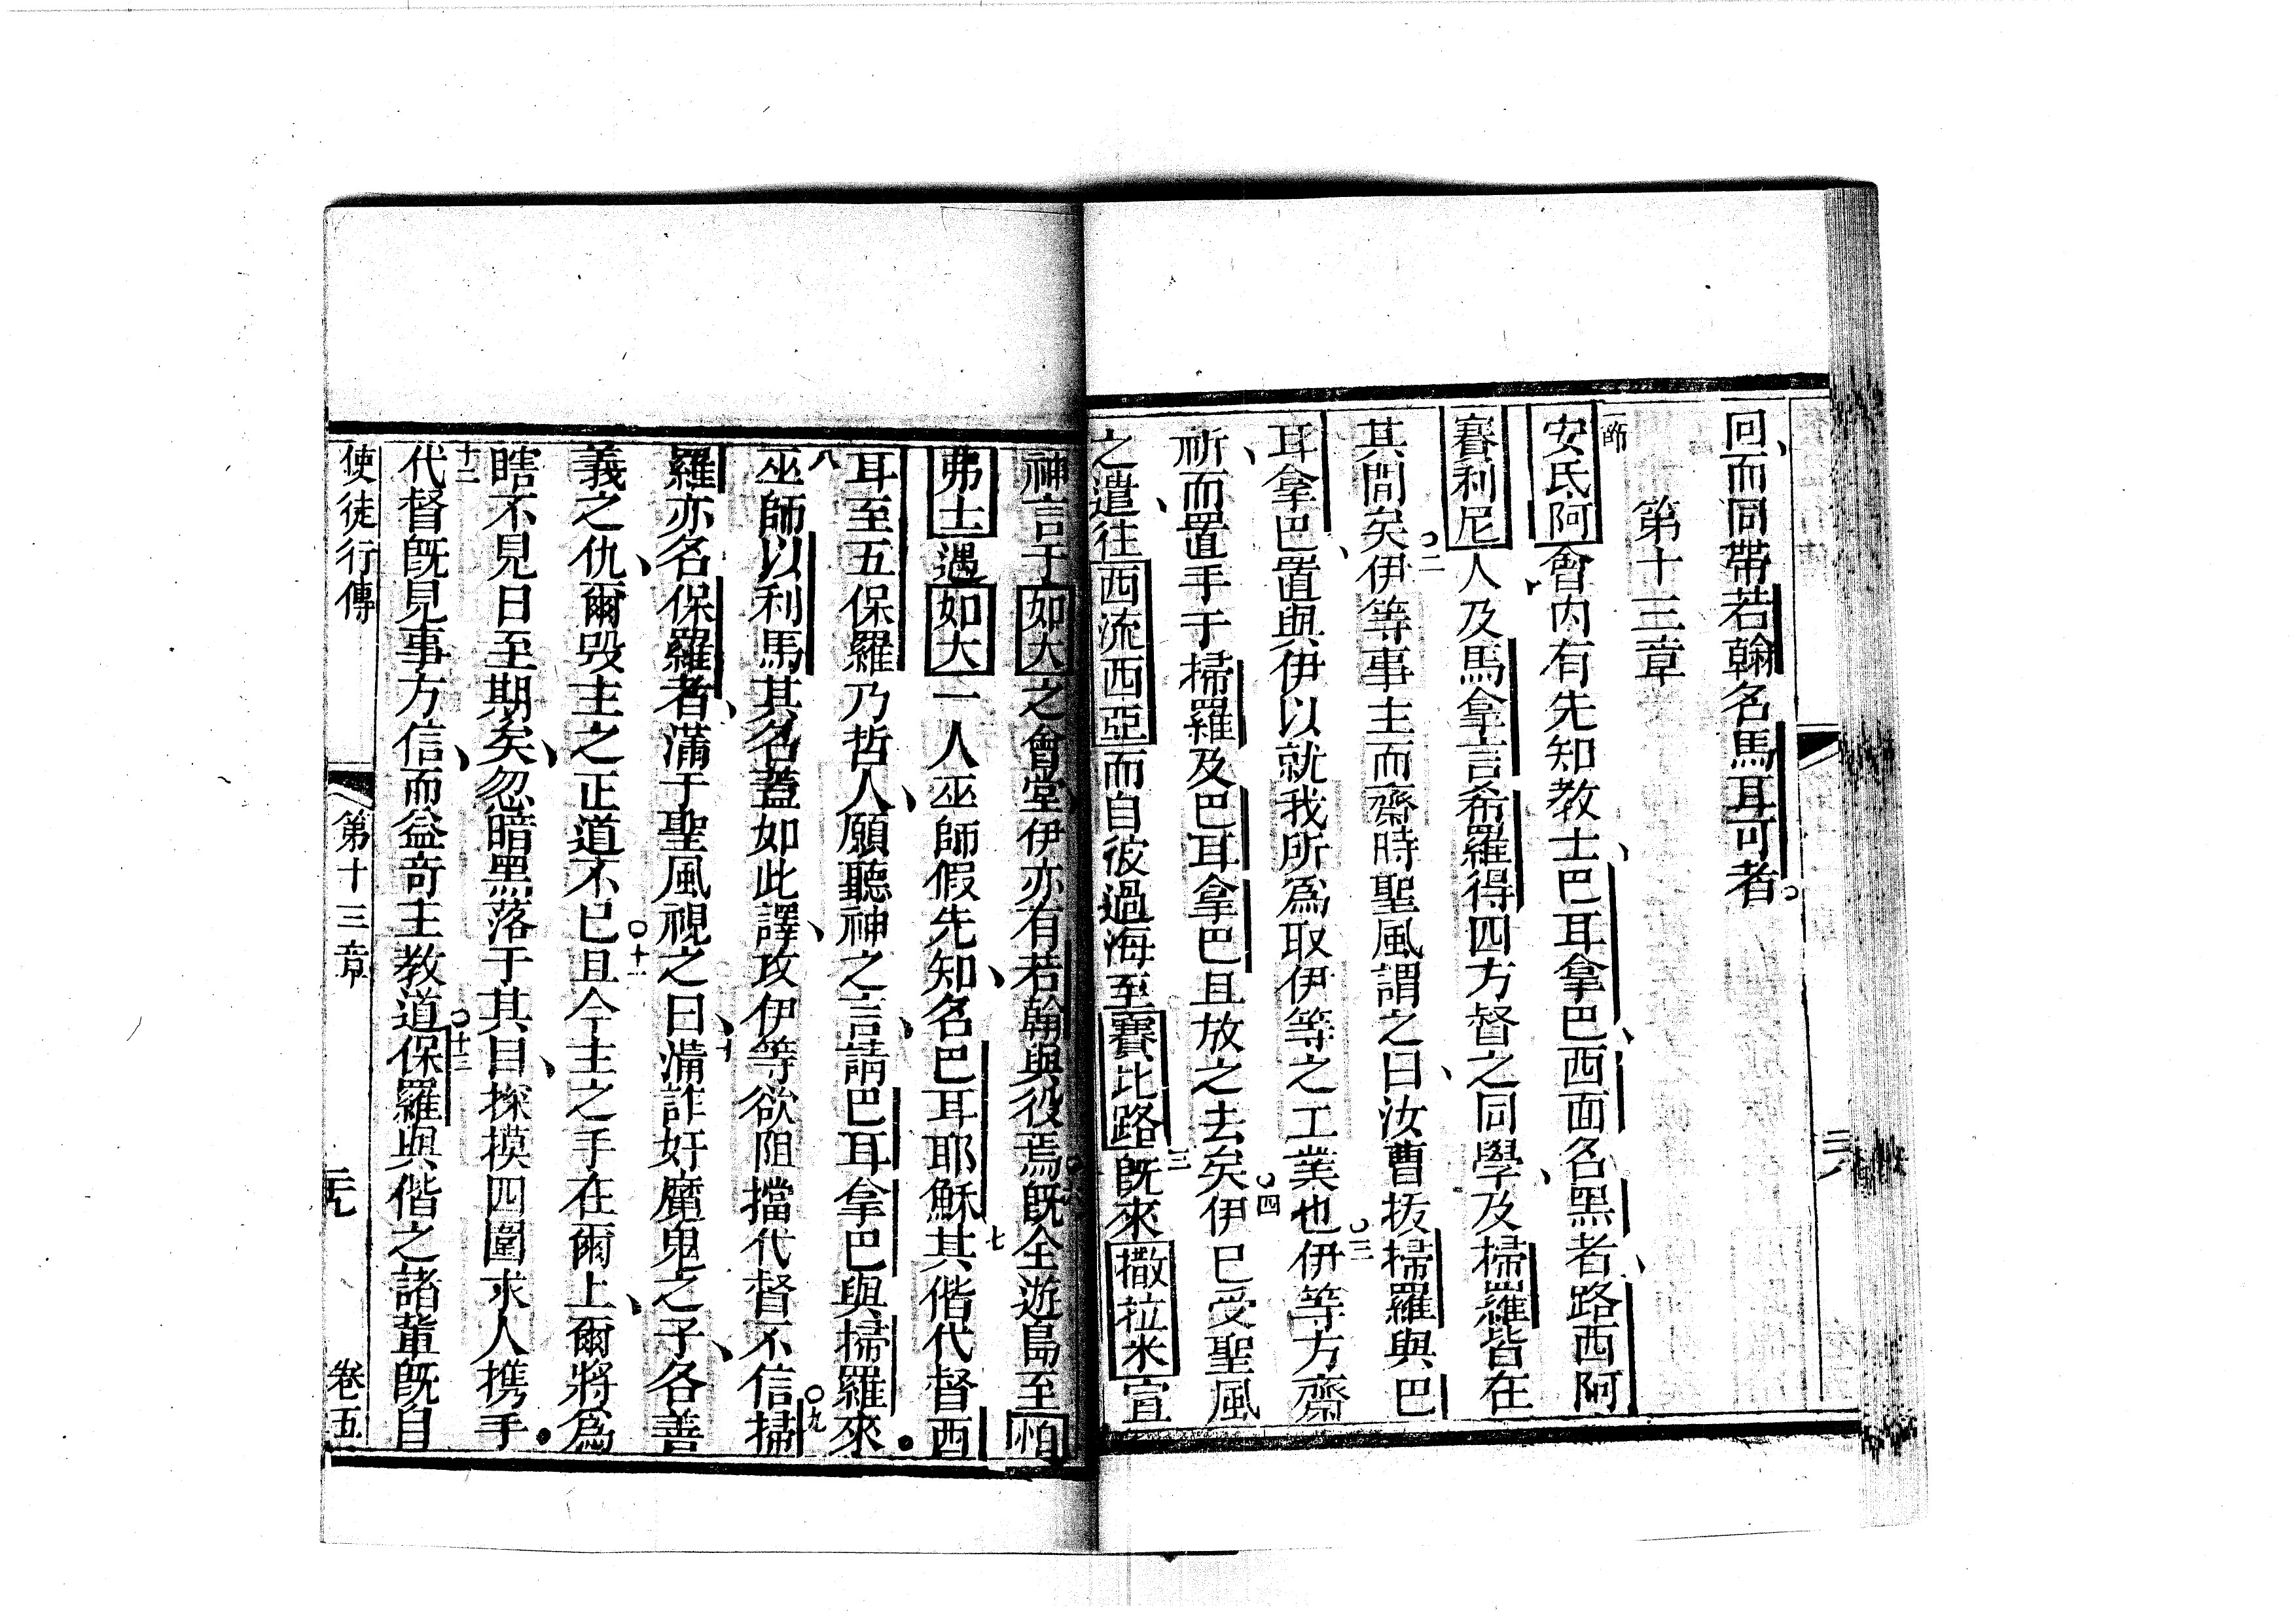 回、而同帶若翰名馬耳可者
第十三章
一節
安氏阿會內有先知教士、巴耳拿巴、西面名黑者、路西阿
賽利尼人、及馬拿言希羅得四方督之同學、及掃羅皆在
其間矣○二伊等事主而齋時聖風謂之曰、汝曹拔掃羅與巴
耳拿巴、置與伊以就我所爲取伊等之工業也○三伊等方齋
祈、而置手于掃羅及巴耳拿巴且放之去矣○四伊已受聖風
之遣、往西流西亞而自彼過海至賽比路三既來撒拉米宣
神言于如大之會堂伊亦有若翰與役焉既全遊島至怕
弗士遇如大一人巫師假先知、名巴耳耶穌七其偕代督西
耳至五保羅乃哲人、願聽神之言、請巴耳拿巴與掃羅來
八巫師以利馬其名蓋如此譯、攻伊等欲阻擋代督不信○九掃
羅亦名保羅者、滿于聖風視之曰、十滿詐奸魔鬼之子、各善
義之仇、爾毀主之正道不已○十一且今主之手在爾上、爾將爲
瞎不見日至期矣、忽暗黑落于其目、探摸四圍求人携手
十二代督既見事方信、而益奇主教道○十三保羅與偕之諸輩既自
使徒行傳 第十三章 卷五